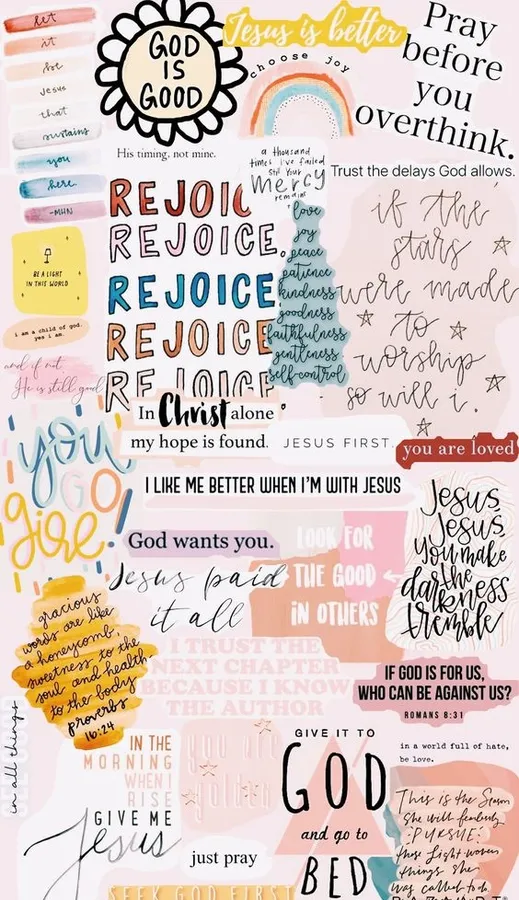 let
it
be
Jesus
that
sustains
you
here
-MHN
GOD
IS
GOOD
Jesus is better
choose joy
Pray
before
you
overthink.
His timing, not mine.
a thousand
times I've failed
still your
Mercy
remains
Trust the delays God allows.
REJOIC
REJOICE.
REJOICE
REJOICE
REJOICE
love
joy
peace
patience
kindness
goodness
faithfulness
gentleness
self-control
if the
stars
were made
to
worship
so will i.
BE A LIGHT
IN THIS WORLD
i am a child of god.
yes i am.
and if not,
He is still good
In Christ alone
my hope is found.
JESUS FIRST.
you are loved
you
GO
girl.
I LIKE ME BETTER WHEN I'M WITH JESUS
God wants you.
LOOK FOR
THE GOOD
IN OTHERS
Jesus,
Jesus
you make
the
darkness
tremble
Jesus paid
it all
gracious
words are like
a honeycomb,
sweetness to the
soul and health
to the body
proverbs
16:24
I TRUST THE
NEXT CHAPTER
BECAUSE I KNOW
THE AUTHOR
IF GOD IS FOR US,
WHO CAN BE AGAINST US?
ROMANS 8:31
in all things
IN THE
MORNING
WHEN I
RISE
GIVE ME
Jesus
you are
golden
just pray
SEEK GOD FIRST
GIVE IT TO
GOD
and go to
BED
in a world full of hate,
be love.
This is the Season
She will fearlessly
PURSUE
those Light woven
things She
was called to do.